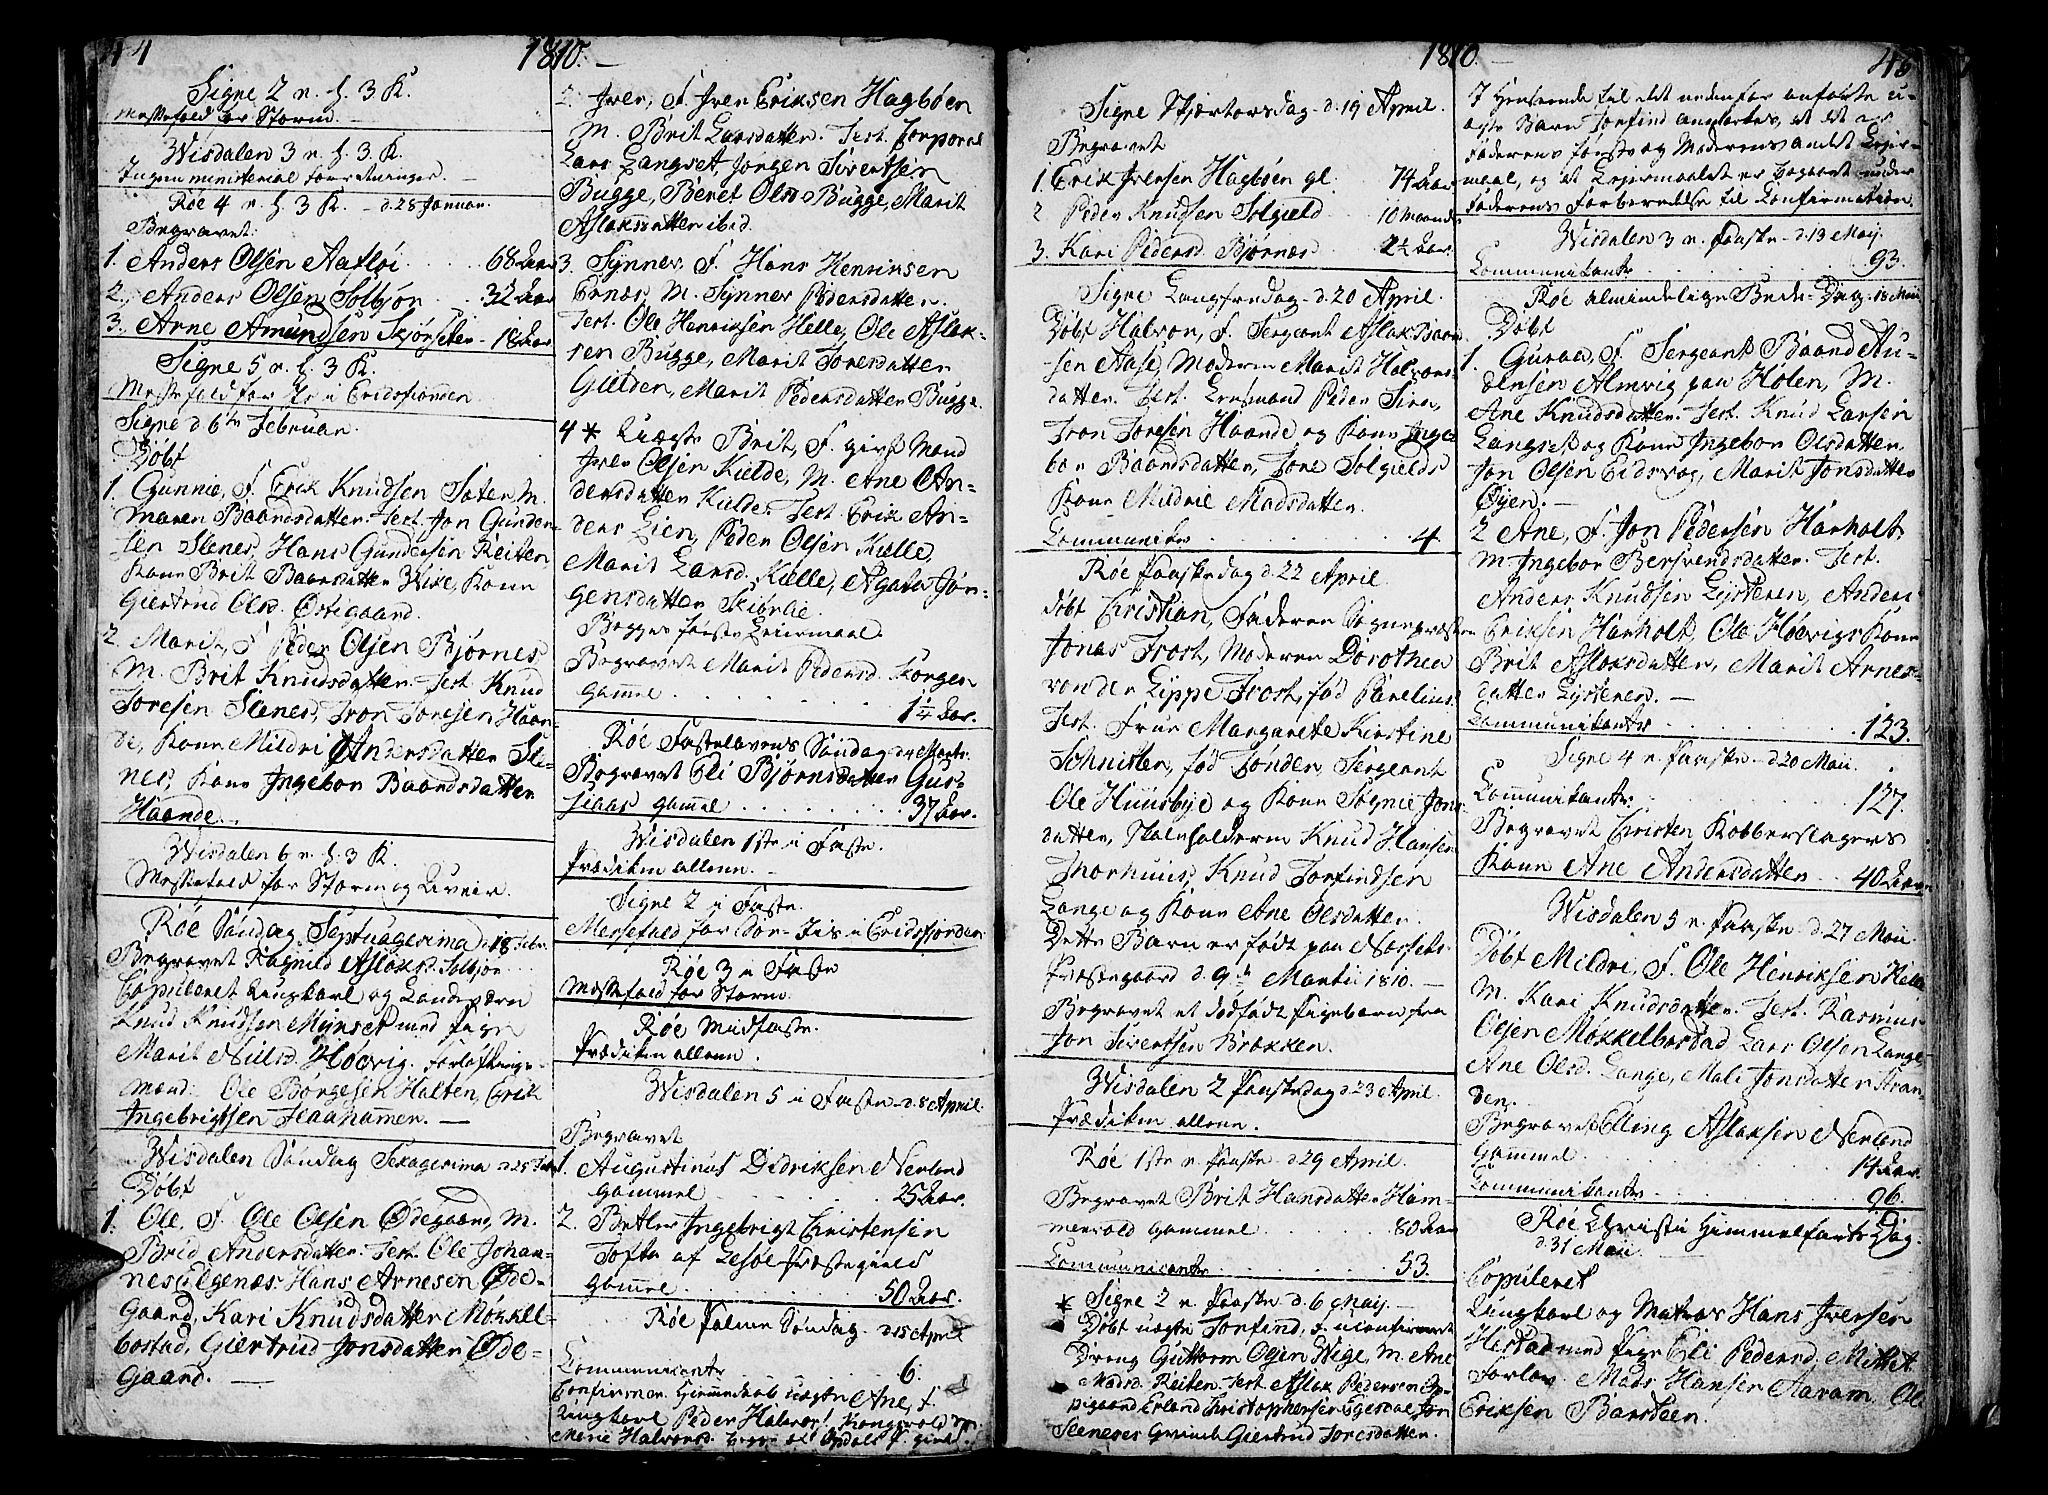 44
1810.
Signe 2 n. h. 3 K.
Messefald for Storm.
Wisdalen 3 n. h. 3 K.
Ingen ministerial Forretninger.
Røe 4 n. h. 3 K. d. 28 Januar.
Begravet:
1. Anders Olsen Aafløi 68 Aar
2. Anders Olsen Solbjør 32 Aar
3. Arne Amundsen Skjørseter 18 Aar
Signe 5 n. h. 3 K.
Messefald for Is i Eridsfiorden
Signe d 6te Februar.
Døbt
1. Gunnie, F. Erik Knudsen Sæter, M.
Maren Baardsdatter. Test. Jon Gunder-
sen Stenes, Hans Gundersen Reiten
Kone Brit Baardsdatter Wike, Kone
Giertrud Olsd. Østigaard.
2. Marit, F. Peder Olsen Bjørnes
M. Brit Knudsdatter. Test. Knud
Toresen Stenes, Tron Toresen Haan-
de, Kone Mildri Andersdatter Ste-
nes, Kone Ingebor Baardsdatter
Haande.
Wisdalen 6 n. h. 3 K.
Messefald for Storm og Uveir.
Røe Søndag Septuagesima d. 18 Febr.
Begravet Ragnild Aslaksd. Solbjør
Copuleret Ungkarl og Landsværn
Knud Knudsen Mynset med Pige
Marit Nilsd. Høvrig. Forlovnings-
mænd: Ole Børgesen Halten, Erik
Ingebrigtsen Flaahammer.
Wisdalen Søndag Sexagesima d. 25 Febr.
Døbt
1. Ole, F. Ole Olsen Ødegaard, M.
Brid Andersdatter. Test. Ole Johan-
nesen Hans Arnesen Øde-
Gaard, Kari Knudsdatter Møkkel-
bostad, Giertrud Jonsdatter Øde-
Gaard.
2. Iver, F. Iver Eriksen Hagbøen
M. Brit Larsdatter. Test. Corporal
Lars Langset, Jørgen Sivertsen
Bugge, Beret Olsd. Bugge, Marit
Aslaksdatter ibid.
3. Synnev, F. Hans Henriksen
Ernæs M. Synnev Pedersdatter.
Test. Ole Henriksen Helle, Ole Aslak-
sen Bugge, Marit Toresdatter
Gulden, Marit Pedersdatter Bugge.
4 * Uægte Brit, F. gift Mand
Iver Olsen Kulde, M. Ane An-
dersdatter Kulde. Test. Erik An-
ders Lien, Peder Olsen Kielle,
Marit Larsd. Kielle, Agata Jør-
gensdatter Skiørlie.
Begges første Leiermaal.
Begravet Marit Pedersd. Torgen
gammel 1 1/4 Aar.
Røe Fastelavens Søndag d 4 Marts.
Begravet Eli Bjørnsdatter Gus-
siaas gammel 37 Aar.
Wisdalen 1ste i Faste.
Prædiken allene.
Signe 2 i Faste.
Messefald for Sør-Iis i Eridsfjorden
Røe 3 i Faste
Messefald for Storm.
Røe Midfaste.
Prædiken allene.
Wisdalen 5 i Faste d. 8 April.
Begravet
1. Augustinus Didriksen Nerland
gammel 25 Aar.
2. Betler Ingebrigt Christensen
Tofte af Lesøe Præstegield
gammel 50 Aar.
Røe Palme Søndag d. 15 April
Communicanter 6.
Confirmer. Hjemmedøb uægte Ane, F.
Ungkarl Peder Halvors. Kongsvold M.
Marie Halvorsd.
1810.
45
Signe Skjærtorsdag d. 19 April.
Begravet
1. Erik Iversen Hagbøen gl. 74 Aar
2 Peder Knudsen Solgield 10 Maaneder
3. Kari Pedersd. Bjørnæs 2 1/2 Aar.
Signe Langfredag d. 20 April.
Døbt Halvor, F. Sergeant Aslak Baard-
sen Aase, Moderen Marit Halvors-
datter. Test. Lensmand Peder Sira,
Tron Toresen Haande og Kone Inge-
bor Baardsdatter, Tore Solgields
Kone Mildrie Madsdatter.
Communikr 4
Røe Paaskedag d. 22 April.
Døbt Christian, Faderen Sognepræsten
Jonas Frost, Moderen Dorothea
von der Lippe Frost, fød Parelius.
Test. Frue Margarete Kirstine
Schnitler, fød Tønder, Sergeant
Ole Huusbye og Kone Sognie Jons-
datter, Skoleholderen Knud Hansen
Thorhuus, Knud Torfindsen
Lange og Kone Ane Olsdatter.
Dette Barn er født paa Nessets
Præstegaard d. 9de Martii 1810.
Begravet et dødfødt Pigebarn fra
Jon Sivertsen Brakken.
Wisdalen 2 Paaskedag d. 23 April.
Prædiken allene.
Røe 1ste n. Paaske d. 29 April.
Begravet Brit Hansdatter Ham-
mervold gammel 80 Aar
Communicanter 53.
* Signe 2 n. Paaske d. 6 Maij.
Døbt uægte Torfind, F. uconfirmeret
Dreng Guttorm Olsen Wege, M. Ane
Madsd. Reiten. Test. Aslak Pedersen Op-
pigaard Erland Christophersen Egerdal, Jon
Steneses Qvinde Giertrud Toresdatter.
I Henseende til det nedenfor anførte u-
ægte Barn Torfind anmærkes, at det er
Faderens første og Moderens andet Leier-
maal, og at Leiermaalet er begaaet under
Faderens Forberedelse til Confirmation.
Wisdalen 3 n. Paaske d. 13 Maij.
Communikanter 93.
Røe almindelige Bede-Dag 18 Maii
Døbt
1. Guraa, F. Sergeant Baard Au-
densen Almvig paa Holen, M.
Ane Knudsdatter. Test. Knud Larsen
Langset og Kone Ingebor Olsdatter,
Jon Olsen Eidsvog, Marit Jonsdatter
Øyen.
2 Ane, F. Jon Pedersen Harholt
M. Ingebor Bersvendsdatter. Test.
Anders Knudsen Lysteren, Anders
Eriksen Harholt, Ole Høvrigs Kone
Brit Aslaksdatter, Marit Arnes-
datter Lysteren.
Communikanter 123.
Signe 4 n. Paaske d 20 Maii.
Communikanter: 127.
Begravet Christen Kobberslagers
Kone Ane Andersdatter 40 Aar
Wisdalen 5 n. Paaske d. 27 Maii.
Døbt Mildri, F. Ole Henriksen Helle
M. Kari Knudsdatter. Test. Rasmus
Olsen Møkkelbostad Lars Olsen Lange,
Ane Olsd. Lange, Mali Jonsdatter Stran-
den.
Begravet Elling Aslaksen Nerland
Gammel 14 Aar.
Communikanter 96.
Røe Christi Himmelfarts Dag.
d. 31 Maii
Copuleret
Ungkarl og Matros Hans Iversen
Hestad med Pige Eli Pedersd. Mittet
Forlov. Mads Hansen Aaram Ole
Eriksen Barsteen.